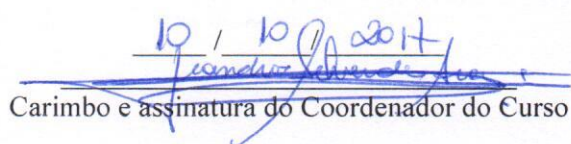 10 / 10 / 2017
Leandro
Carimbo e assinatura do Coordenador do Curso